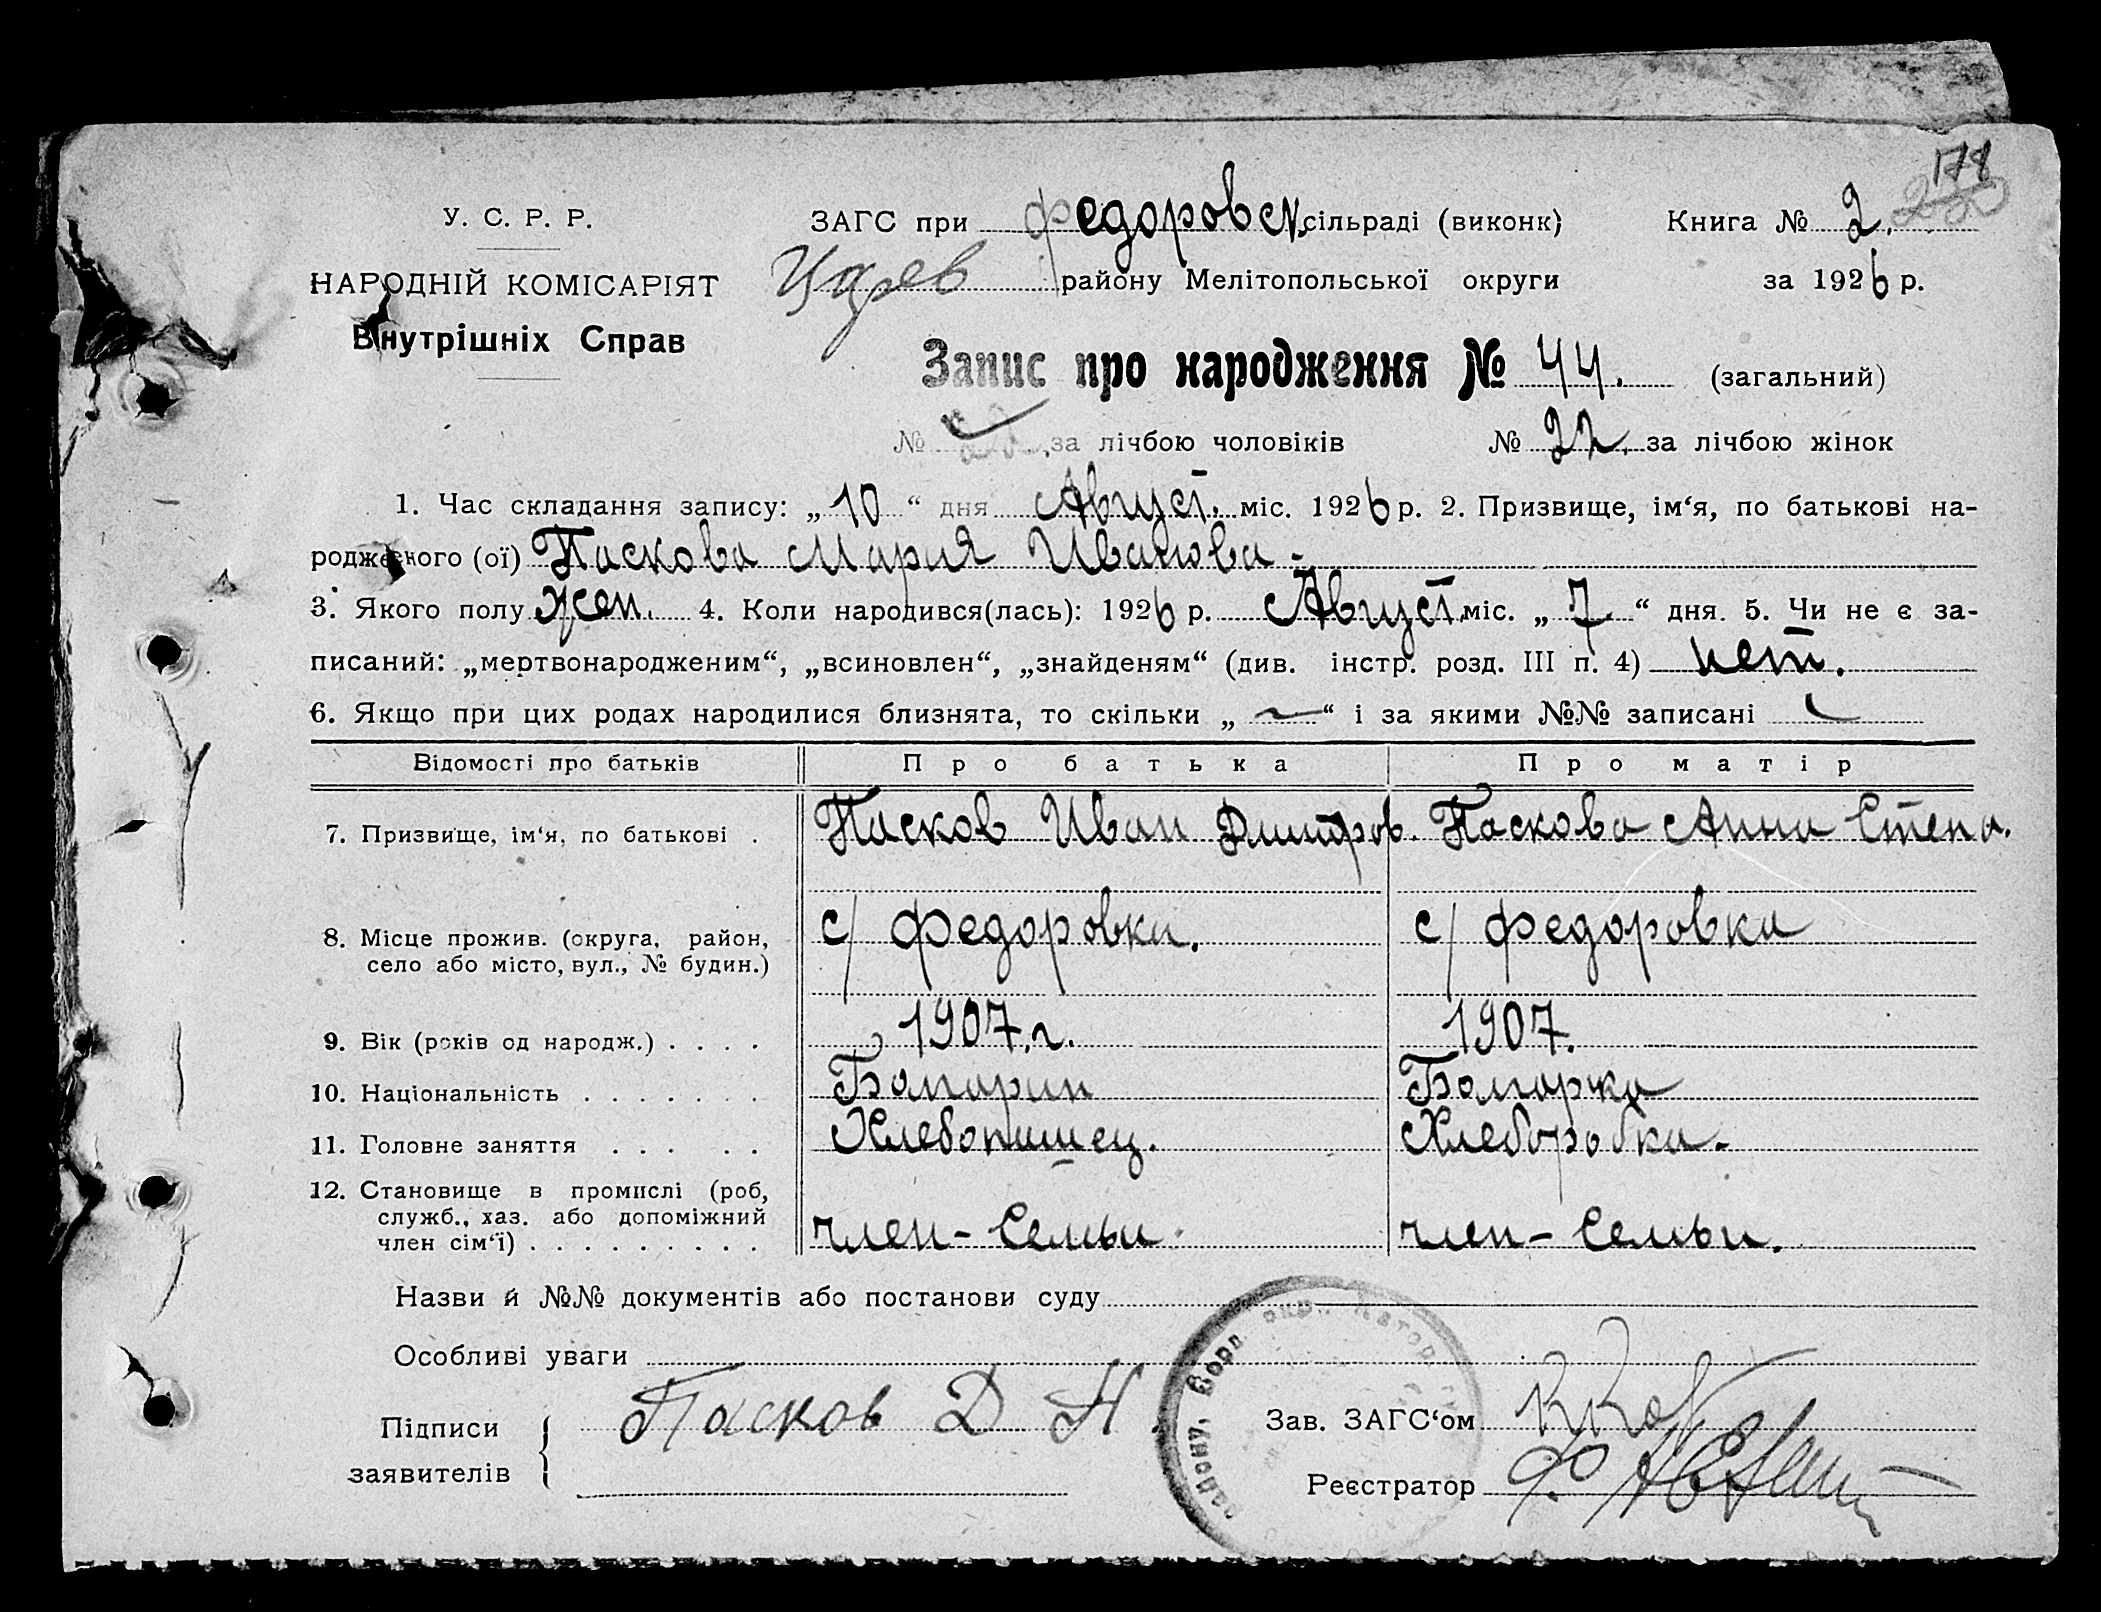 178
У. С. Р. Р.
ЗАГС при Федоровск. сільраді (виконк)
Книга № 2.
НАРОДНІЙ КОМІСАРІЯТ
Внутрішніх Справ
району Мелітопольської округи
за 1926 р.
Запис про народження № 44. (загальний)
№ за лічбою чоловіків № 22. за лічбою жінок
1. Час складання запису: „10“ дня Август. міс. 1926 р. 2. Призвище, ім‘я, по батькові на-
родженого (ої) Паскова Мария Иванова -
3. Якого полу жен. 4. Коли народився(лась): 1926 р. Август. міс. „7“ дня. 5. Чи не є за-
писаний: „мертвонародженим“, „всиновлен“, „знайденям“ (див. інстр. розд. III п. 4) нет.
6. Якщо при цих родах народилися близнята, то скільки „ — “ і за якими №№ записані —
Відомості про батьків Про батька Про матір
7. Призвище, ім‘я, по батькові . Пасков Иван Дмитров. Паскова Анна Степа.
8. Місце прожив. (округа, район, село або місто, вул., № будин.) с/ Федоровка. с/ Федоровка
9. Вік (років од народж.) . . . . 1907. г. 1907.
10. Національність . . . . . . . Болгарин Болгарка
11. Головне заняття . . . . . Хлебопашец. Хлеборобка -
12. Становище в промислі (роб, служб., хаз. або допоміжний член сім‘ї) . . . . . . . . . член - Семьи. член - Семьи.
Назви й №№ документів або постанови суду
Особливі уваги
Підписи
заявителів
Пасков Д Н
Зав. ЗАГС‘ом
Реєстратор